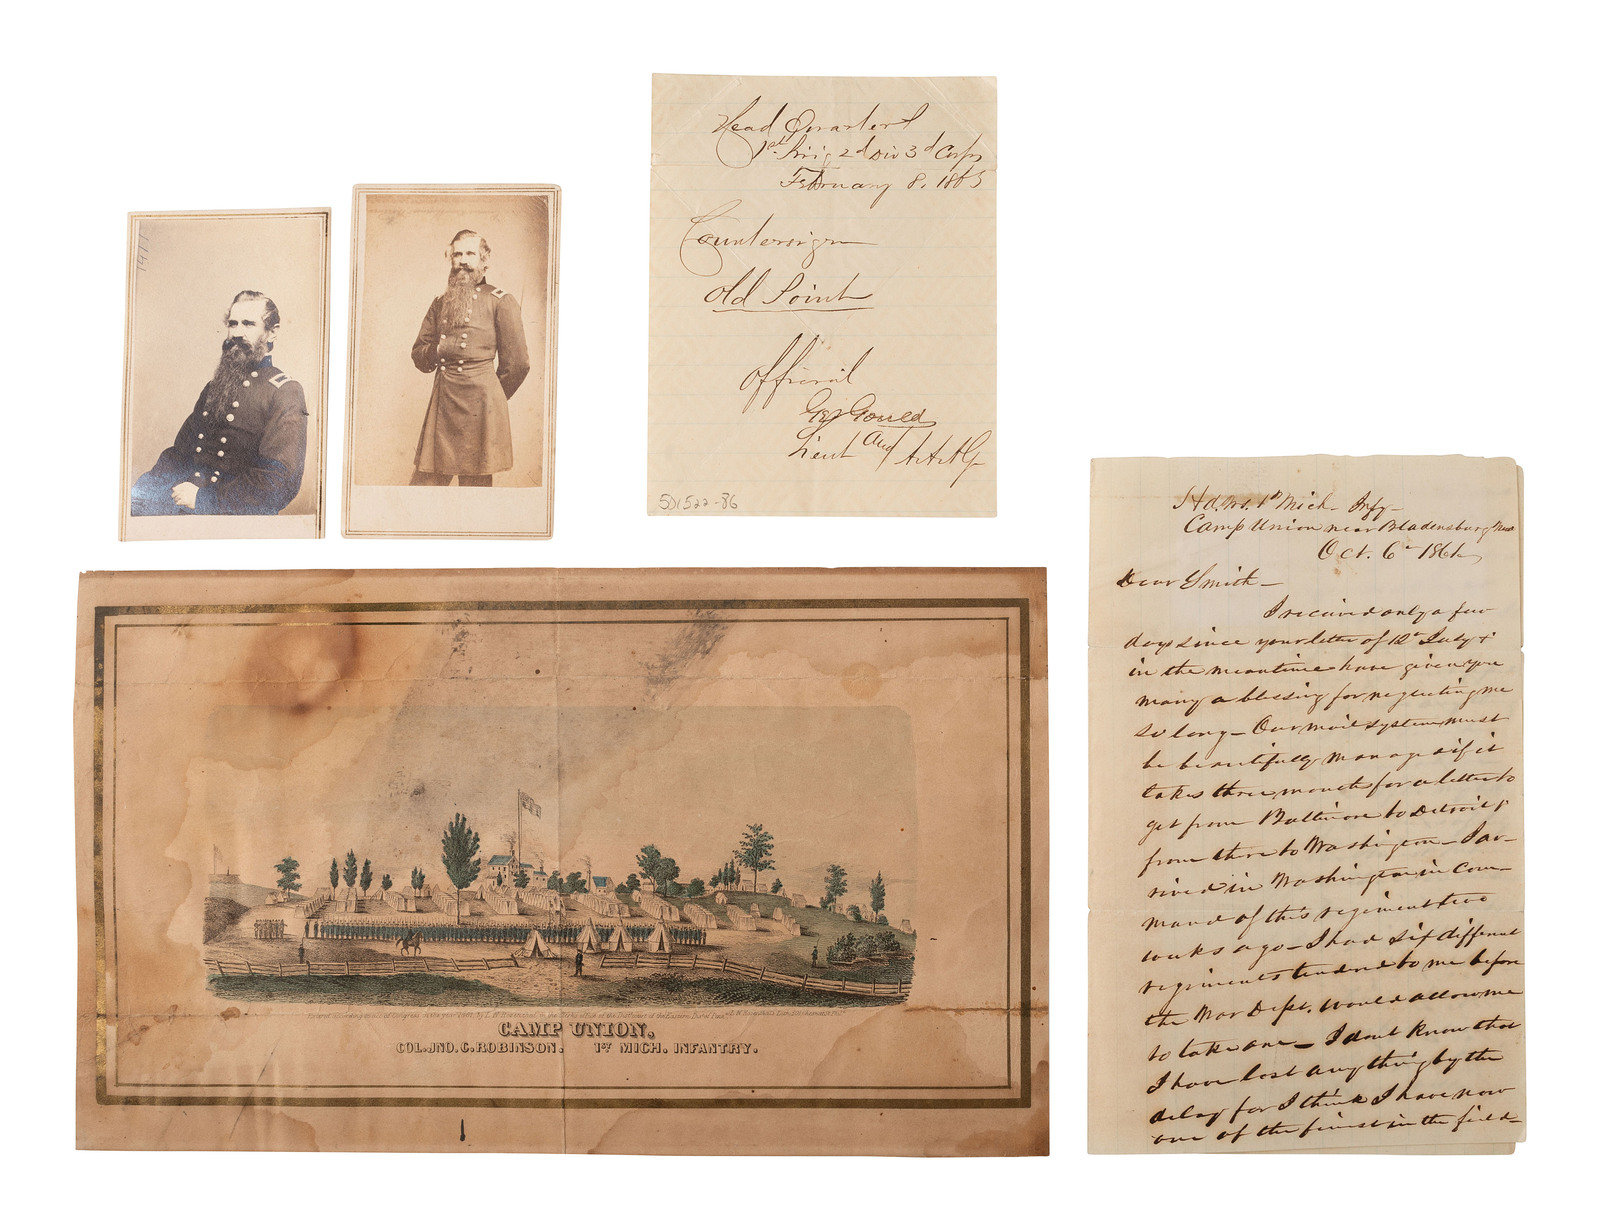 Head Quarters
1st Brig 2d Div 3d Corps
February 8, 1863
Countersign
Old Point
Official
Gould
Lieut and AAAG
501522-86
Hd. Qrs. 1st Mich. Infy-
Camp Union near Bladensburg Md
Oct. 6th 1861,
Dear Smith-
I received only a few
days since your letter of 12th July &
in the meantime have given you
many a blessing for neglecting me
so long- Our mail system must
be beautifully managed if it
takes three months for a letter to
get from Baltimore to Detroit &
from there to Washington- I ar-
rived in Washington in Com-
mand of this regiment two
weeks ago- I had six different
regiments tendered to me before
the War Dept. would allow me
to take one- I dont know that
I have lost any thing by the
delay for I think I have now
one of the finest in the field-
Entered according to act of Congress in the year 1861 by L. N. Rosenthal in the Clerks office of the District court of the Eastern District of Pa.
L. N. Rosenthal's Lith.
CAMP UNION,
COL. JNO. C. ROBINSON. 1ST MICH. INFANTRY.